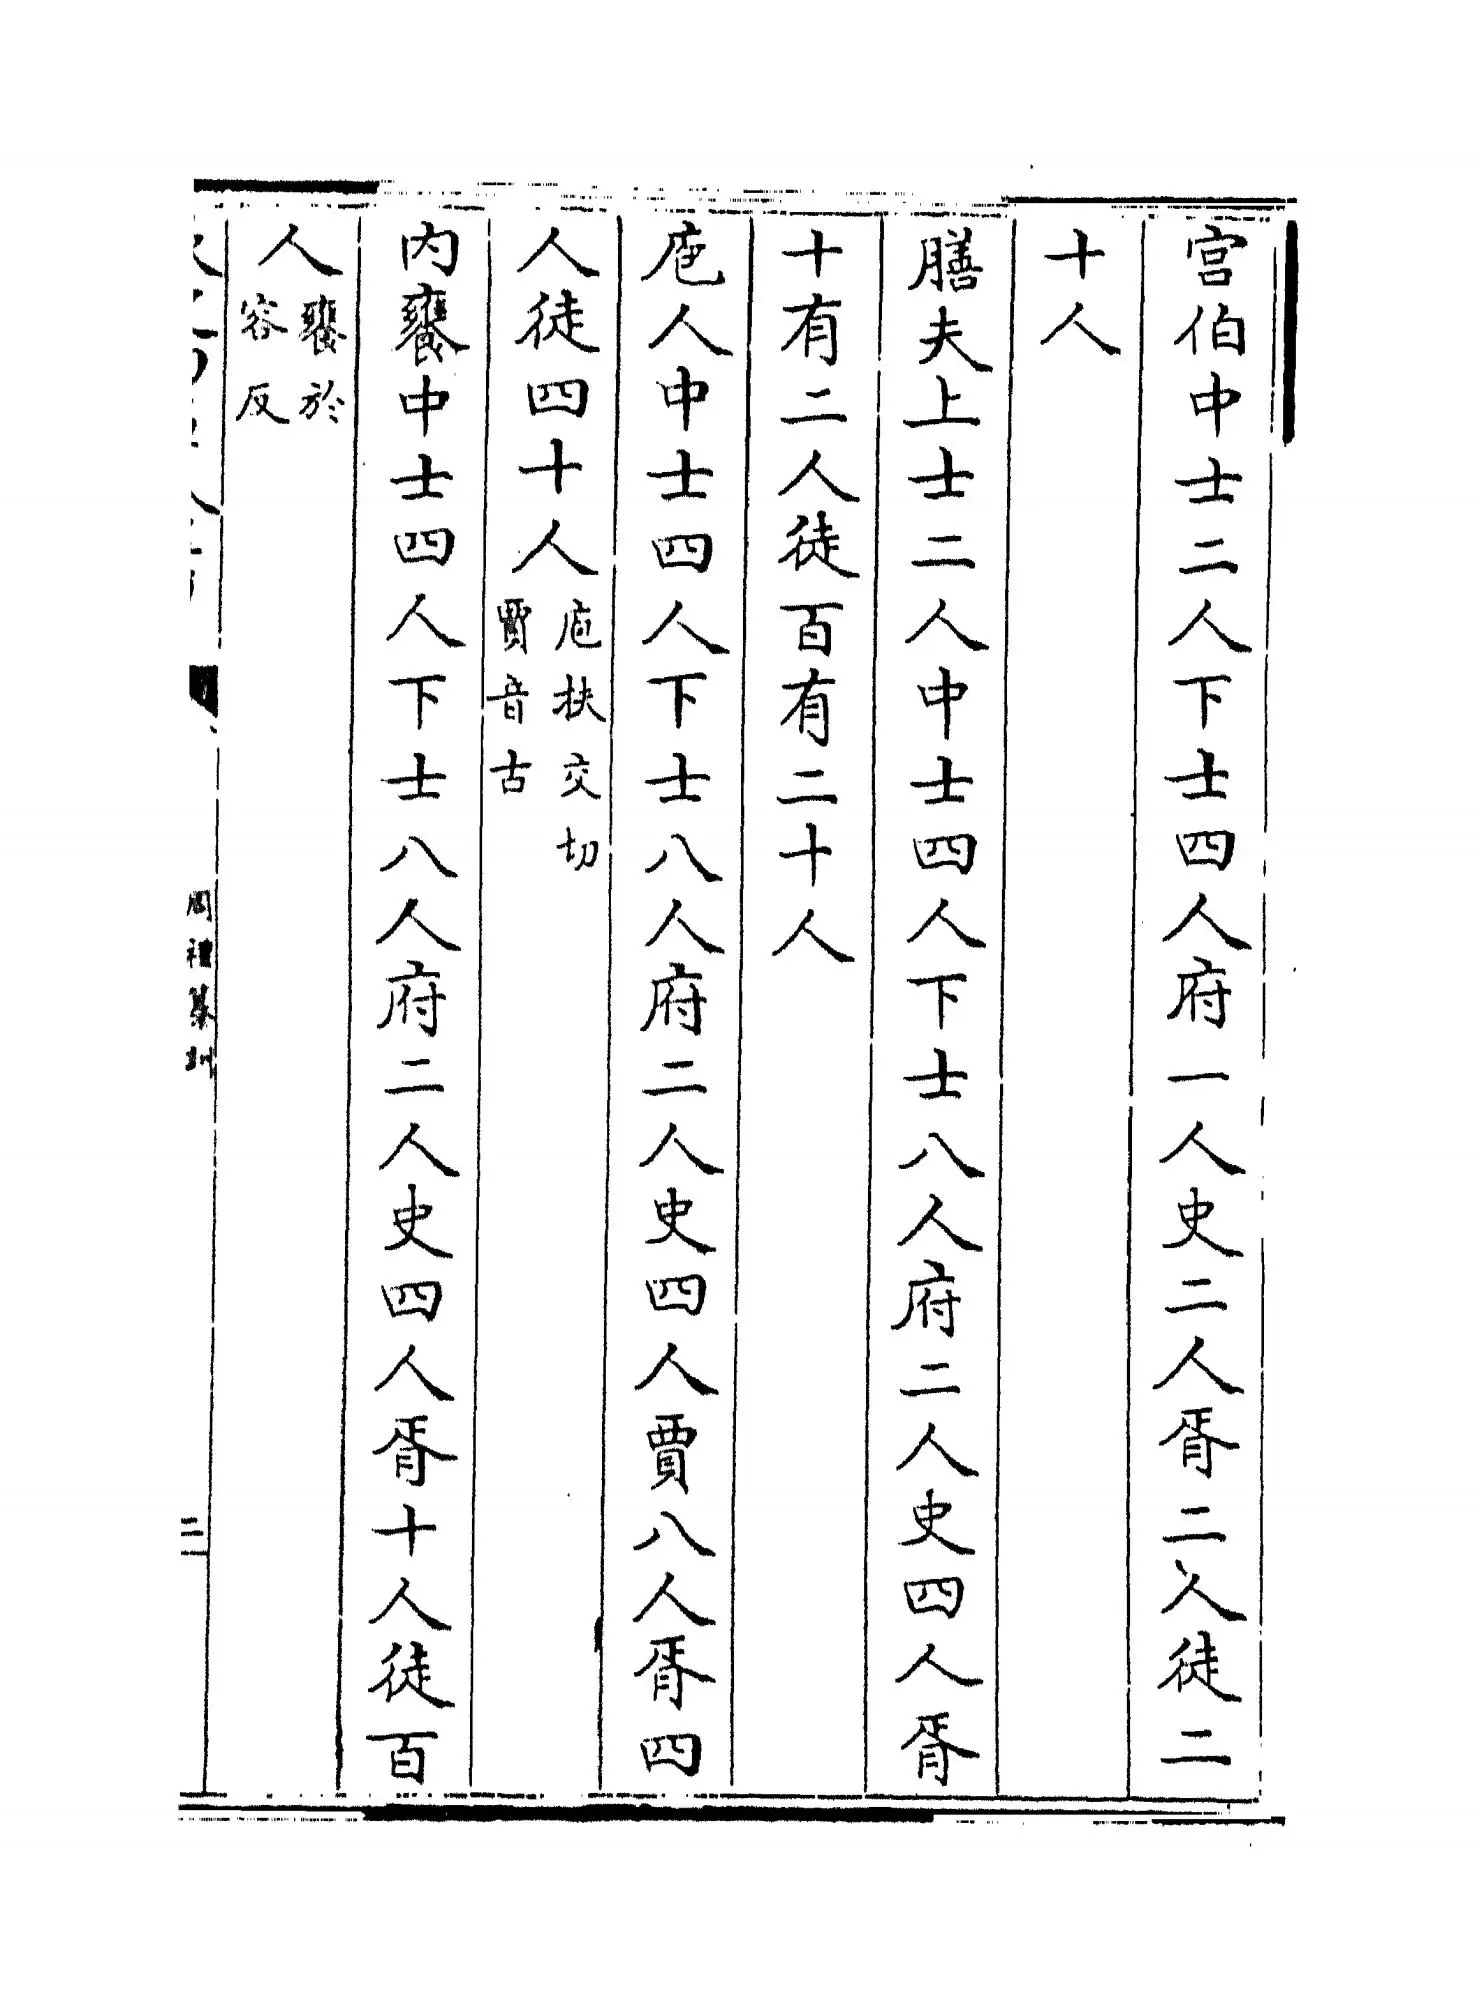 宫伯中士二人下士四人府一人史二人胥二人徒二
十人
膳夫上士二人中士四人下士八人府二人史四人胥
十有二人徒百有二十人
庖人中士四人下士八人府二人史四人賈八人胥四
人徒四十人
庖扶交切
賈音古
内饔中士四人下士八人府二人史四人胥十人徒百
人
饔於
容反
周禮纂訓
二